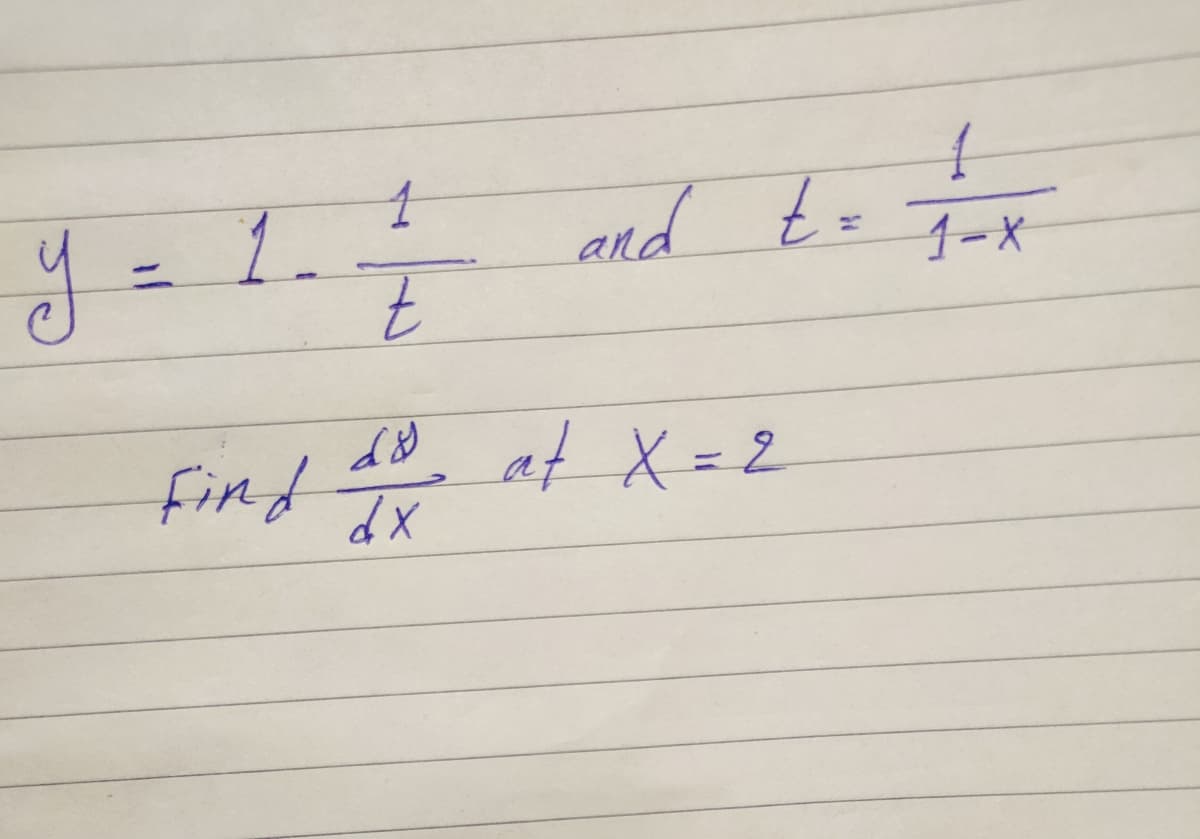 y = 1 - 1/t and t = 1/(1-x)
Find dy/dx at X = 2